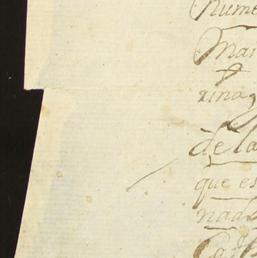 Nume
Mar
rina
de la
que es
nada